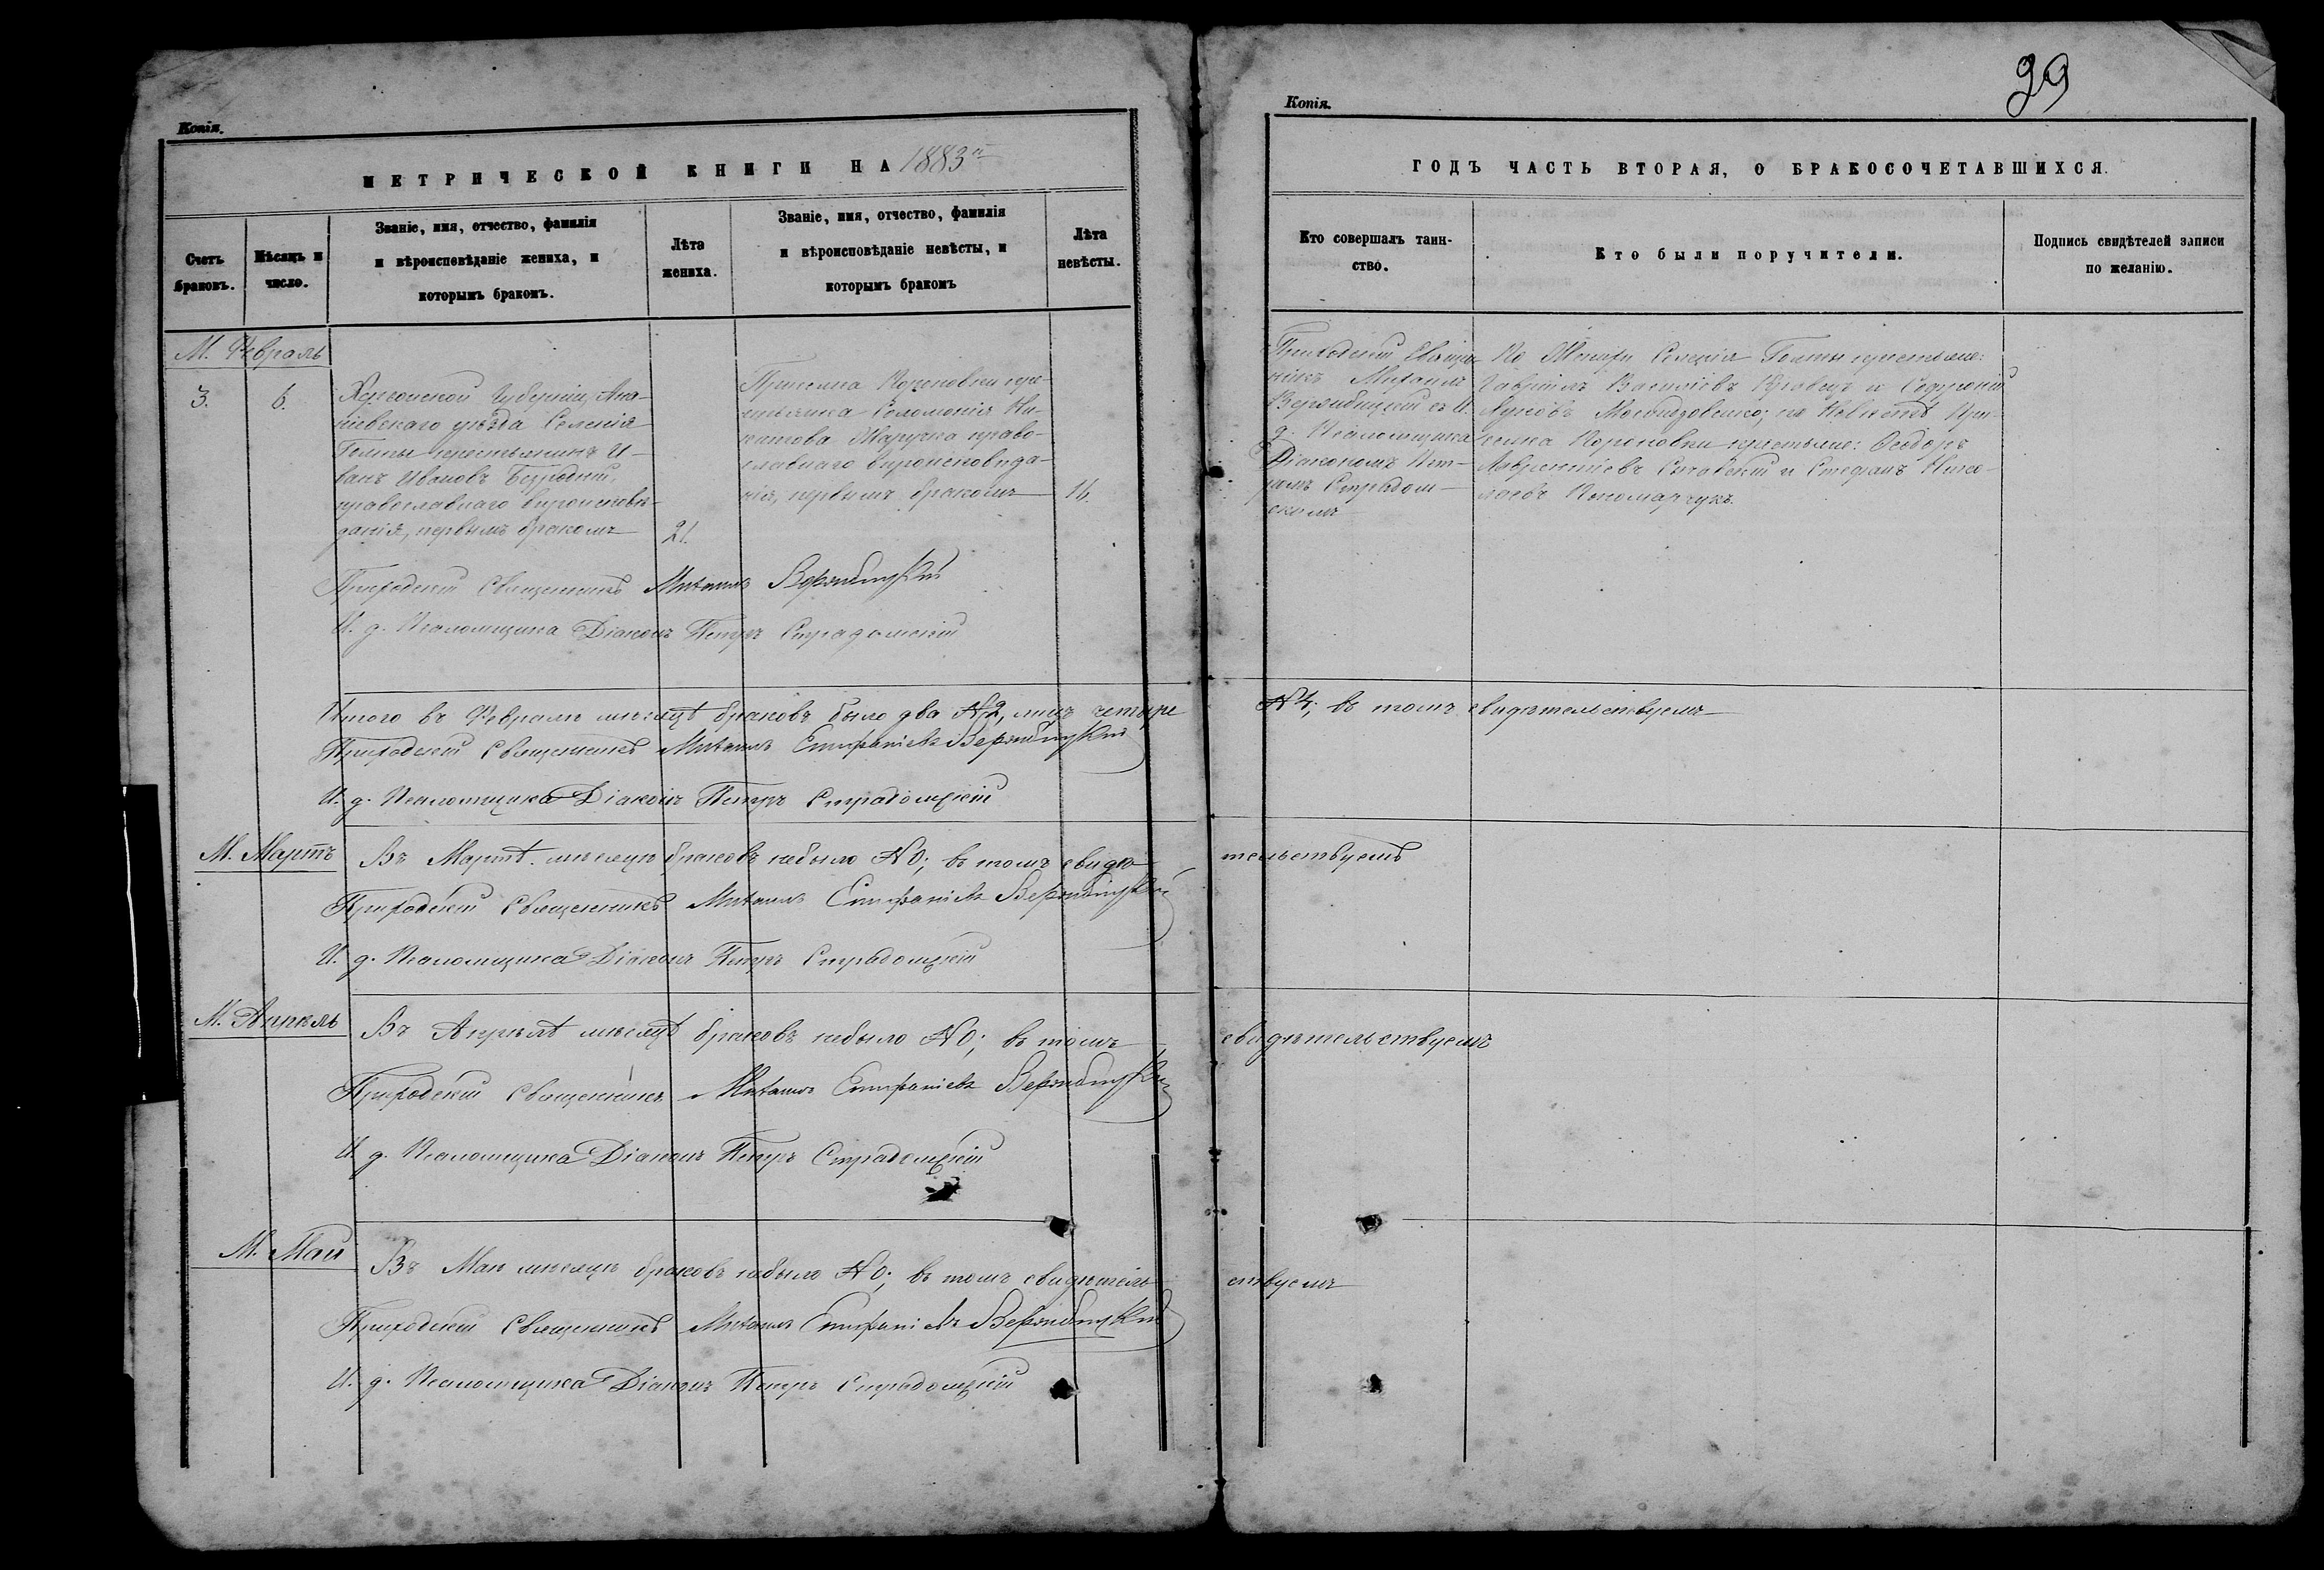 Копія.
МЕТРИЧЕСКОЙ КНИГИ НА 1883й
Счетъ браковъ.
Мѣсяцъ и число.
Званіе, имя, отчество, фамилія
и вѣроисповѣданіе жениха, и
которымъ бракомъ.
Лѣта
жениха.
Званіе, имя, отчество, фамилія
и вѣроисповѣданіе невѣсты, и
которымъ бракомъ
Лѣта
невѣсты.
М. Февраль
3.
6.
Херсонской Губерніи, Ана-
ніевскаго уѣзда Селенія
Голты крестьянинъ И-
ванъ Ивановъ
православнаго вѣроисповѣ-
данія, первымъ бракомъ
21.
Присилка Короновки кре-
стьянка Соломонія Ни-
китова право-
славнаго вѣроисповѣда-
нія, первымъ бракомъ
16.
Приходскій Священникъ Михаилъ Вержбицкій
И. д. Псаломщика Діаконъ Петръ Страдомскій
Итого въ Февралѣ мѣсяцѣ браковъ было два №2, лицъ четыре
Приходскій Священникъ Михаилъ Епифаніевъ Вержбицкій
И. д. Псаломщика Діаконъ Петръ Страдомскій
М. Мартъ
Въ Мартѣ мѣсяцѣ браковъ небыло №0; въ томъ свидѣ-
Приходскій Священникъ Михаилъ Епифаніевъ Вержбицкій
И. д. Псаломщика Діаконъ Петръ Страдомскій
М. Апрѣль
Въ Апрѣлѣ мѣсяцѣ браковъ небыло №0; въ томъ
Приходскій Священникъ Михаилъ Епифаніевъ Вержбицкій
И. д. Псаломщика Діаконъ Петръ Страдомскій
М. Май
Въ Маи мѣсяцѣ браковъ небыло №0; въ томъ свидѣтель-
Приходскій Священникъ Михаилъ Епифаніевъ Вержбицкій
И. д. Псаломщика Діаконъ Петръ Страдомскій
Копія.
99
ГОДЪ ЧАСТЬ ВТОРАЯ, О БРАКОСОЧЕТАВШИХСЯ.
Кто совершалъ таин-
ство.
Кто были поручители.
Подпись свидѣтелей записи
по желанію.
Приходскій Священ-
никъ Михаилъ
Вержбицкій съ И.
д. Псаломщика
Діакономъ Пет-
ромъ Страдом-
скимъ
По Женихѣ Селенія Голты крестьяне:
Гавріилъ Васильевъ и
по Невѣстѣ При-
силка Короновки крестьяне: Ѳеодоръ
Лаврентіевъ и Стефанъ Нико-
лаевъ Пономарчукъ.
№4; въ томъ свидѣтельствуемъ
тельствуемъ
свидѣтельствуемъ
ствуемъ